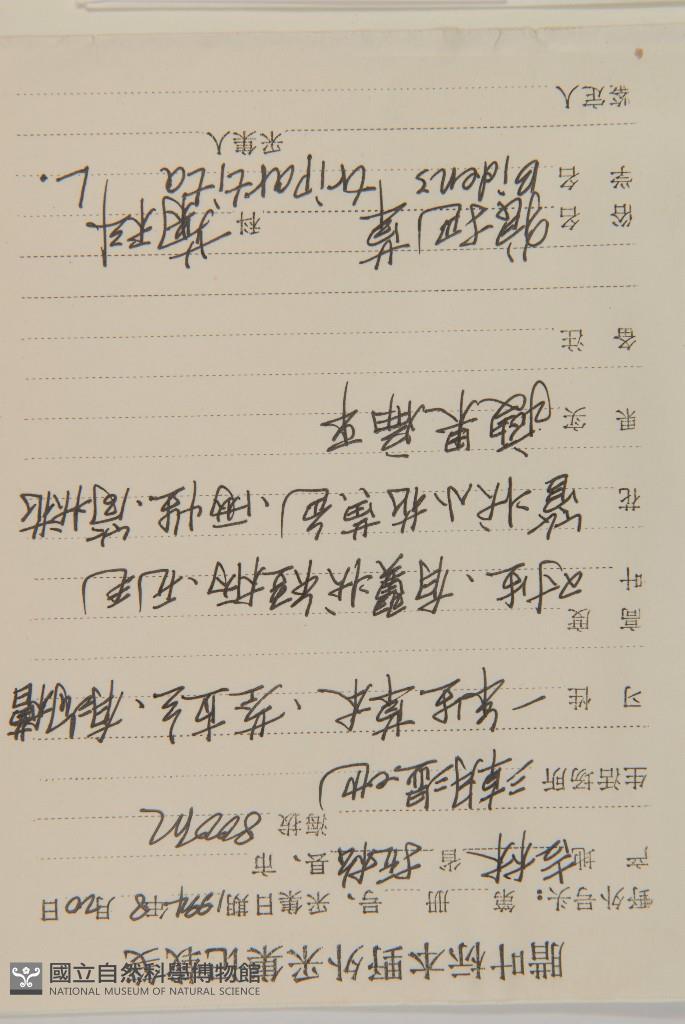 腊叶标本野外采集记载交
野外号头: 第 册 号、采集日期1994年8月20日
产地 吉林 省 县、市
海拔 800m
生活场所 湖湿地
习性 一年生草本、茎直立、有
高度
叶 对生、有翼状短柄、无毛
花 管状小花黄色、两性、筒状花
果实 瘦果扁平
备注
俗名 狼把草 科 菊科
学名 Bidens tripartita L.
采集人
鉴定人
國立自然科學博物館
NATIONAL MUSEUM OF NATURAL SCIENCE